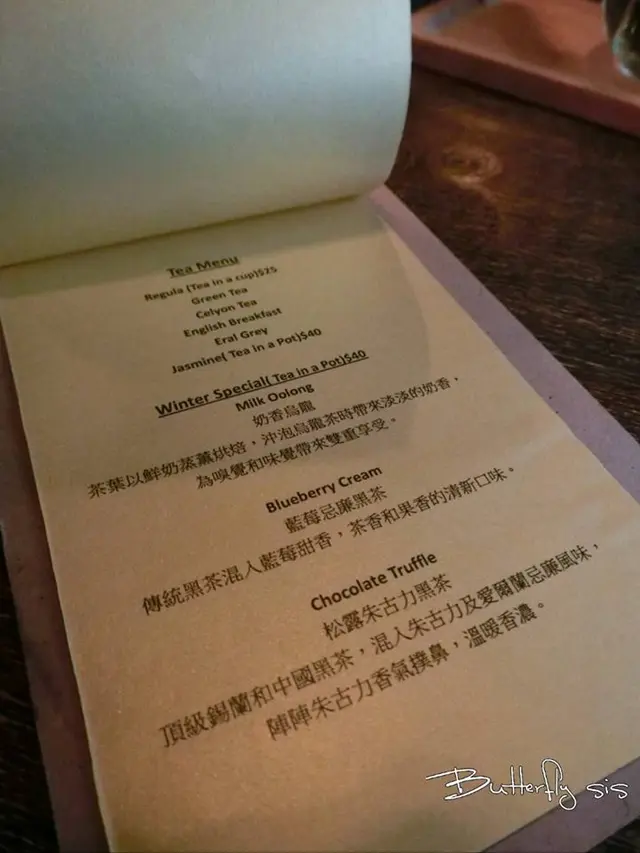 Tea Menu
Regula (Tea in a cup)$25
Green Tea
Celyon Tea
English Breakfast
Eral Grey
Jasmine( Tea in a Pot)$40
Winter Special( Tea in a Pot)$40
Milk Oolong
奶香烏龍
茶葉以鮮奶蒸薰烘焙，沖泡烏龍茶時帶來淡淡的奶香，
為嗅覺和味覺帶來雙重享受。
Blueberry Cream
藍莓忌廉黑茶
傳統黑茶混入藍莓甜香，茶香和果香的清新口味。
Chocolate Truffle
松露朱古力黑茶
頂級錫蘭和中國黑茶，混入朱古力及愛爾蘭忌廉風味，
陣陣朱古力香氣撲鼻，溫暖香濃。
Butterfly sis